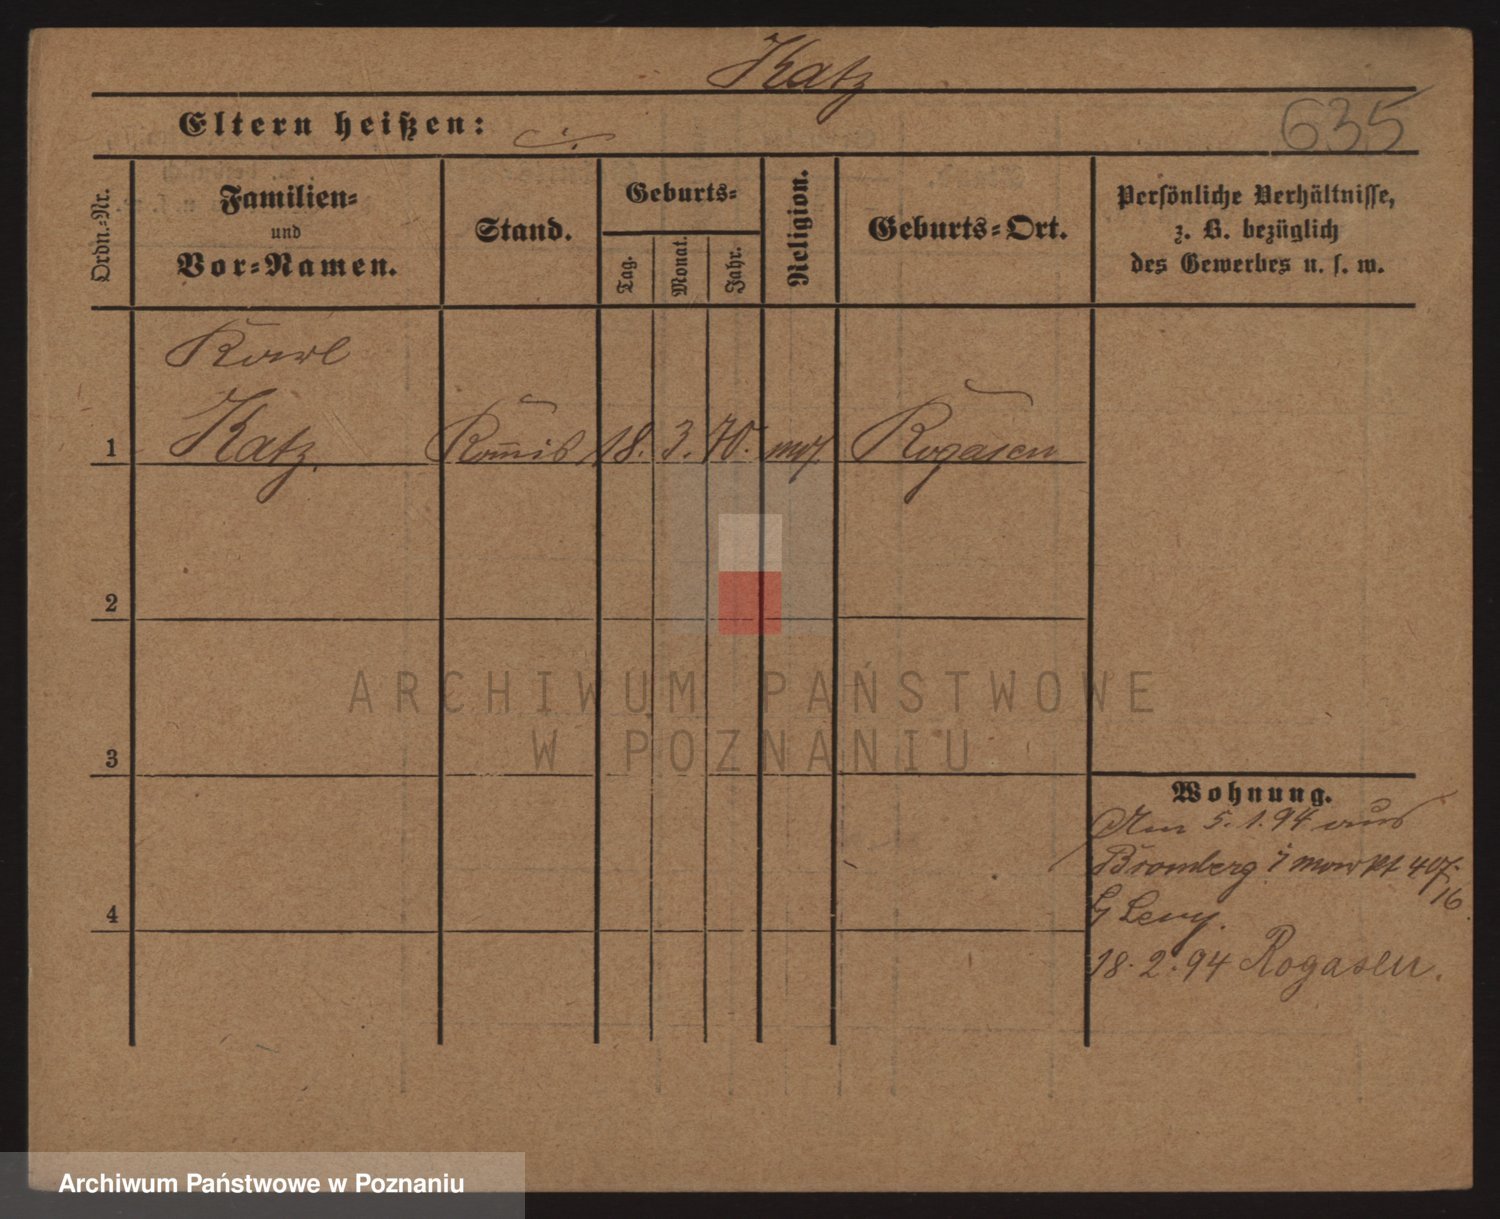 Katz
Eltern heißen:
635
Ordn.=Nr.
Familien=
und
Vor=Namen.
Stand.
Geburts=
Tag.
Monat.
Jahr.
Religion.
Geburts=Ort.
Persönliche Verhältnisse,
z. B. bezüglich
des Gewerbes u. s. w.
Karl
1 Katz. Kom̅is 18. 3. 70. mos. Rogasen
2
ARCHIWUM PAŃSTWOWE
W POZNANIU
3
Wohnung.
Am 5. 1. 94 aus
Bromberg markt 407
16
Levy.
4
18. 2. 94 Rogasen.
Archiwum Państwowe w Poznaniu